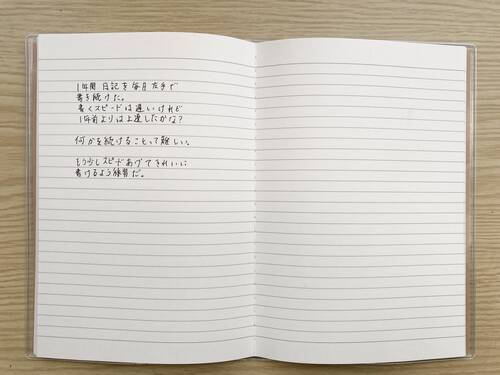 1年間 日記を毎日左手で
書き続けた。
書くスピードは遅いけれど
1年前よりは上達したかな?
何かを続けることって難しい。
もう少しスピードあげてきれいに
書けるよう練習だ。